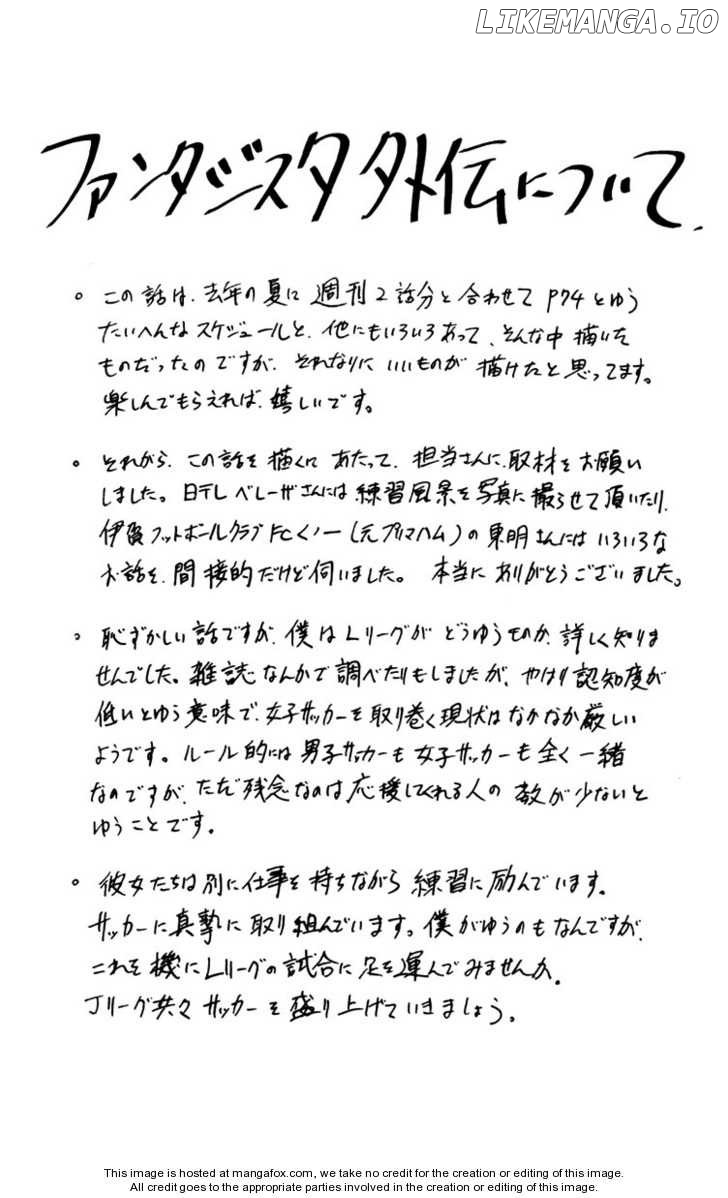 LIKEMANGA.IO
ファンタジスタ外伝について.
。この話は、去年の夏に週刊2話分と合わせてP74とゆう
たいへんなスケジュールと、他にもいろいろあって、そんな中描いた
ものだったのですが、それなりにいいものが描けたと思ってます。
楽しんでもらえれば、嬉しいです。
。それから、この話を描くにあたって、担当さんに、取材をお願い
しました。日テレベレーザさんには練習風景を写真に撮らせて頂いたり、
伊賀フットボールクラブFCくノ一(元プリマハム)の東明さんにはいろいろな
お話を、間接的だけど伺いました。本当にありがとうございました。
。恥ずかしい話ですが、僕はLリーグがどうゆうものか、詳しく知りま
せんでした。雑誌なんかで調べたりもしましたが、やはり認知度が
低いとゆう意味で、女子サッカーを取り巻く現状はなかなか厳しい
ようです。ルール的には男子サッカーも女子サッカーも全く一緒
なのですが、ただ残念なのは応援してくれる人の数が少ないと
ゆうことです。
。彼女たちは別に仕事を持ちながら練習に励んでいます。
サッカーに真摯に取り組んでいます。僕がゆうのもなんですが、
これを機にLリーグの試合に足を運んでみませんか。
Jリーグ共々サッカーを盛り上げていきましょう。
This image is hosted at mangafox.com, we take no credit for the creation or editing of this image.
All credit goes to the appropriate parties involved in the creation or editing of this image.